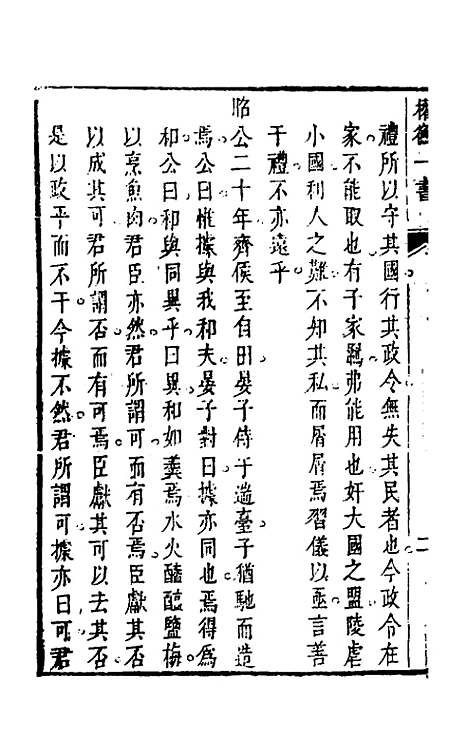 禮所以守其國行其政令無失其民者也今政令在
家不能取也有子家羈弗能用也奸大國之盟陵虐
小國利人之難不知其私而屑屑焉習儀以亟言善
于禮不亦遠乎
昭公二十年齊侯至自田晏子侍于遄臺子猶馳而造
焉公曰惟據與我和夫晏子對曰據亦同也焉得爲
和公曰和與同異乎曰異和如羹焉水火醯醢鹽梅
以烹魚肉君臣亦然君所謂可而有否焉臣獻其否
以成其可君所謂否而有可焉臣獻其可以去其否
是以政平而不干今據不然君所謂可據亦曰可君